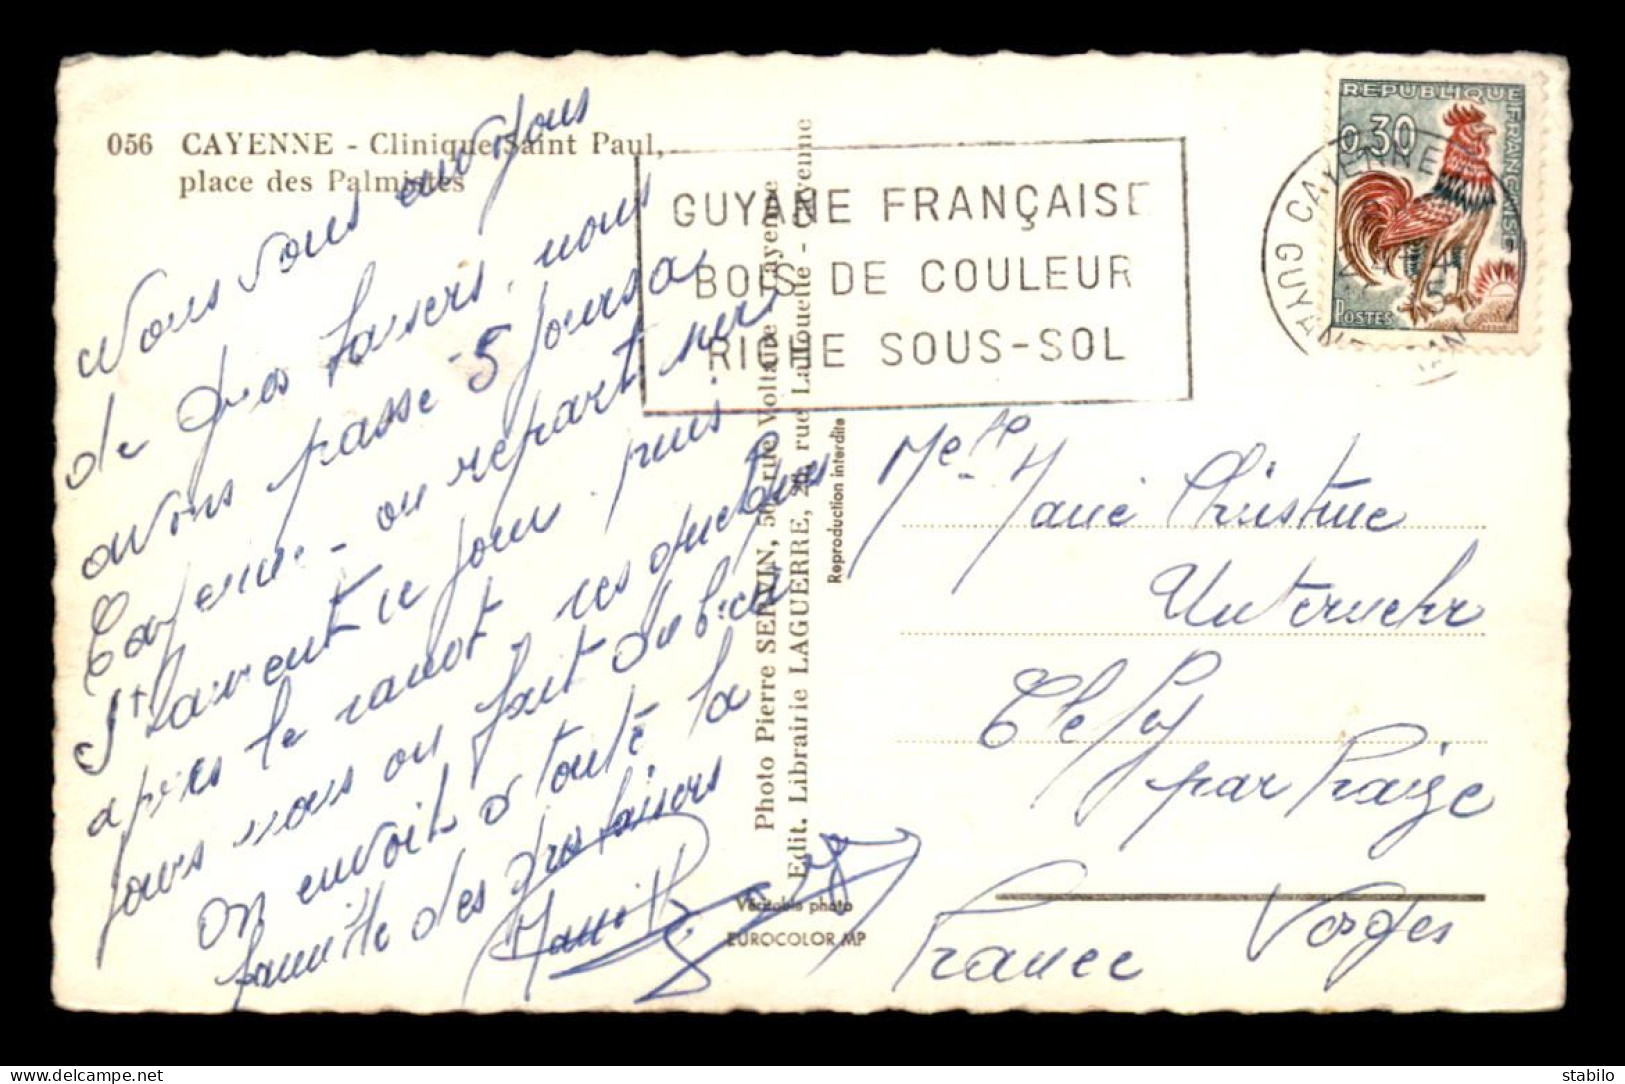 056 CAYENNE - Clinique Saint Paul,
place des Palmistes
Nous vous envoyons
de gros baisers. nous
avons passé 5 jours a
Cayenne - on repart sur
St Laurent un jour puis
apres le canot
jours nous on fait du bien
on envoit à toute la
famille des gros baisers
Photo Pierre SERVIN, 50, rue Voltaire Cayenne
Edit. Librairie LAGUERRE, 20, rue Lallouette - Cayenne
Reproduction interdite
Véritable photo
EUROCOLOR MP
GUYANE FRANÇAISE
BOIS DE COULEUR
RICHE SOUS-SOL
REPUBLIQUE FRANÇAISE
0,30
POSTES
CAYENNE
GUYANE
Melle Marie Christine
Unternehr
Clefcy
par Fraize
Vosges
France
delcampe.net
stabilo